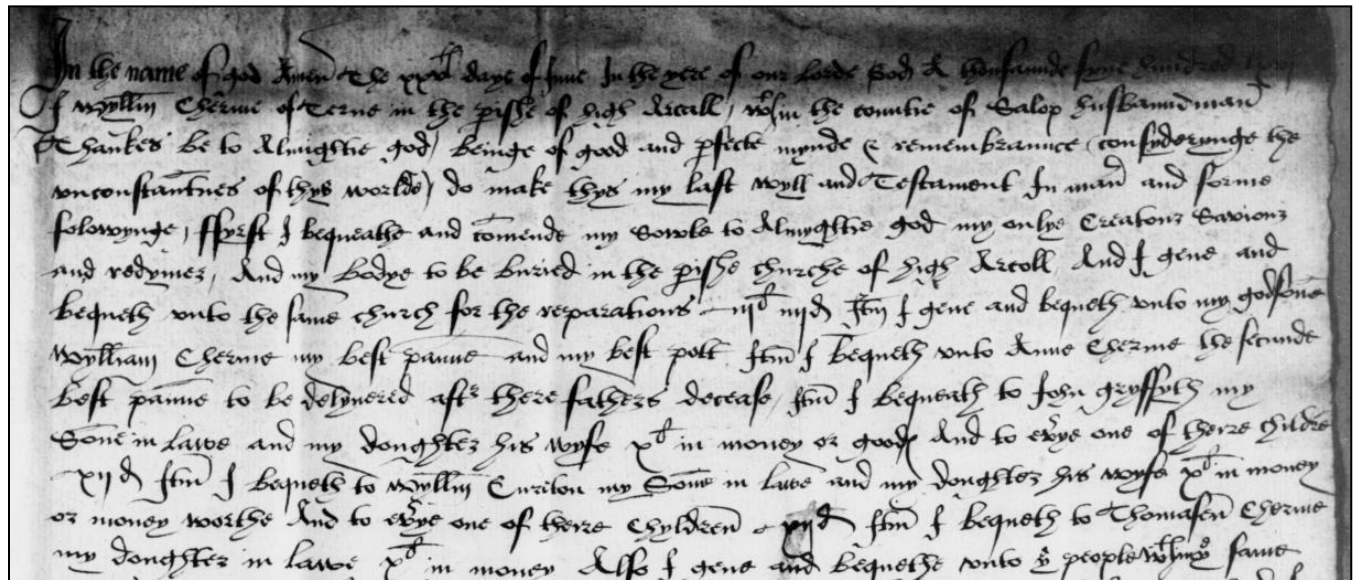 In the name of god Amen The xxvth daye of June In the yere of our lorde God A thousannde fyve hundred
I wyllm Cherme of Terne in the pishe of high Arcall wthin the countie of Salop husbanndman
Thankes be to Almightie god, beinge of good and pfecte mynde & remembrannce consyderynge the
unconstantnes of thys worlde, do make thys my last wyll and Testament In man and forme
folowynge, ffyrst I bequeathe and comende my Sowle to Almyghtie god my onlye Creatour Saviour
and redymer, And my bodye to be buried in the pishe churche of high Arcoll And I geve and
bequeth unto the same church for the reparations iijs iiijd Itm I geve and bequeth unto my godsone
Wylliam Cherme my best panne and my best pott Itm I bequeth unto Anne Cherme the seconde
best panne to be delyvered aftr there fathers decease, Itm I bequeath to John gryffyth my
Sone in lawe and my doughter his wyfe xs in money or goods And to evye one of theire childre
xijd Itm I bequeth to wyllm Cureton my Sone in lawe and my doughter his wyfe xs in money
or money worthe And to evye one of theire Chyldren xijd Itm I bequeth to Thomasen Cherme
my doughter in lawe xs in money Also I geve and bequethe unto ye people wthin ye same